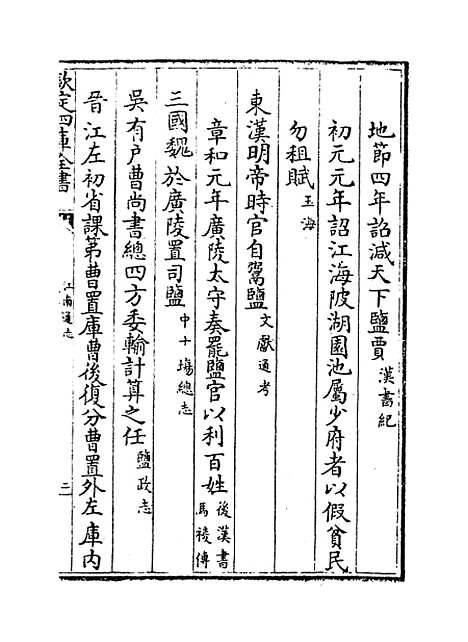 地節四年詔減天下鹽賈漢書紀
初元元年詔江海陂湖園池屬少府者以假貧民
勿租賦玉海
東漢明帝時官自鬻鹽文獻通考
章和元年廣陵太守奏罷鹽官以利百姓後漢書馬稜傳
三國魏於廣陵置司鹽中十場總志
吳有戶曹尚書總四方委輸計算之任鹽政志
晉江左初省課第曹置庫曹後復分曹置外左庫內
欽定四庫全書
江南通志
三